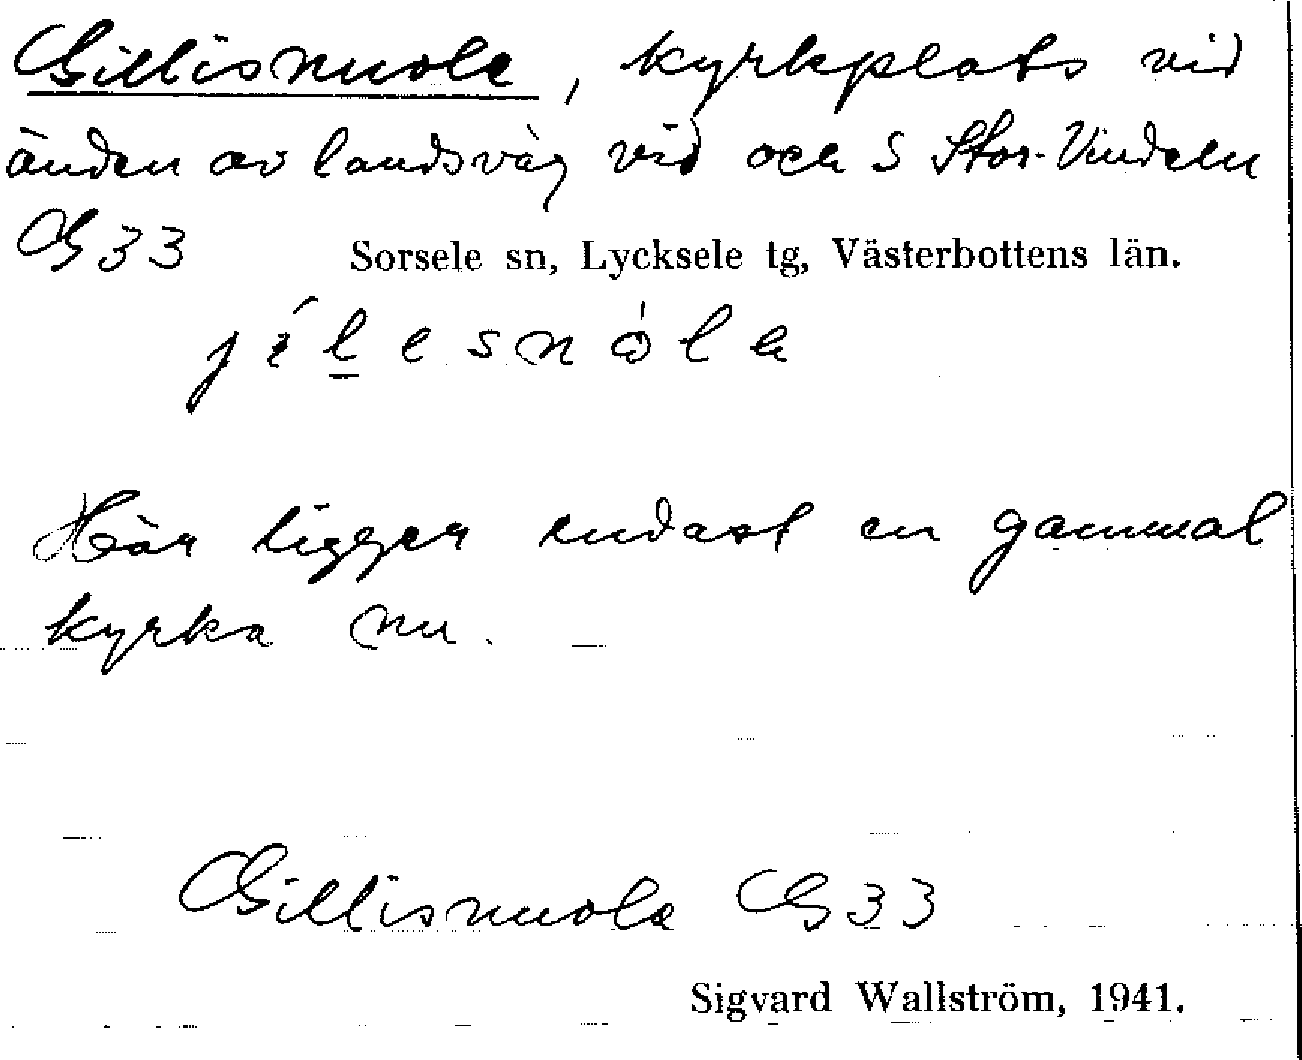 Gillisnuole, kyrkplats vid
änden av landsväg vid och S Stor-Vindeln
G33 Sorsele sn, Lycksele tg, Västerbottens län.
Här ligger endast en gammal
kyrka nu.
Gillisnuole G33
Sigvard Wallström, 1941.